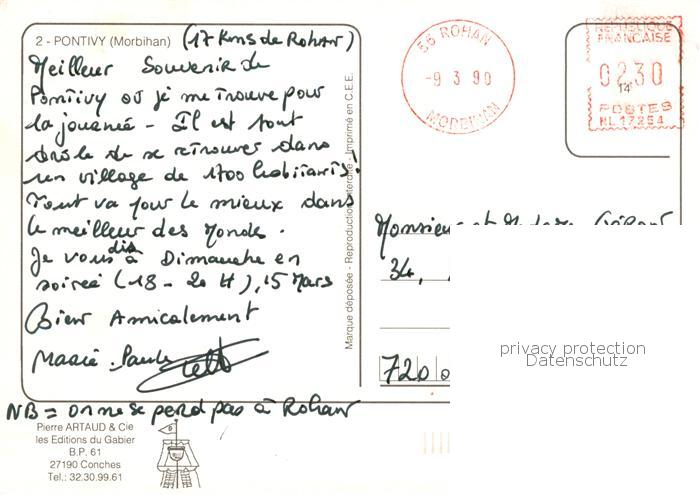 2 - PONTIVY (Morbihan) (17 Kms de Rohan)
Meilleur Souvenir de
Pontivy où je me trouve pour
la journée - Il est tout
drôle de se retrouver dans
un village de 1700 habitants!
Tout va pour le mieux dans
le meilleur des Monde.
Je vous dis à Dimanche en
soirée (18 - 20 H), 15 Mars
Bien Amicalement
Marie-Paule
NB = on ne se perd pas à Rohan
Pierre ARTAUD & Cie
les Editions du Gabier
B.P. 61
27190 Conches
Tel.: 32.30.99.61
Marque déposée - Reproduction interdite - Imprimé en C.E.E.
56 ROHAN
-9 3 90
MORBIHAN
REPUBLIQUE
FRANCAISE
0230
POSTES
Monsieur et
34,
720
privacy protection
Datenschutz